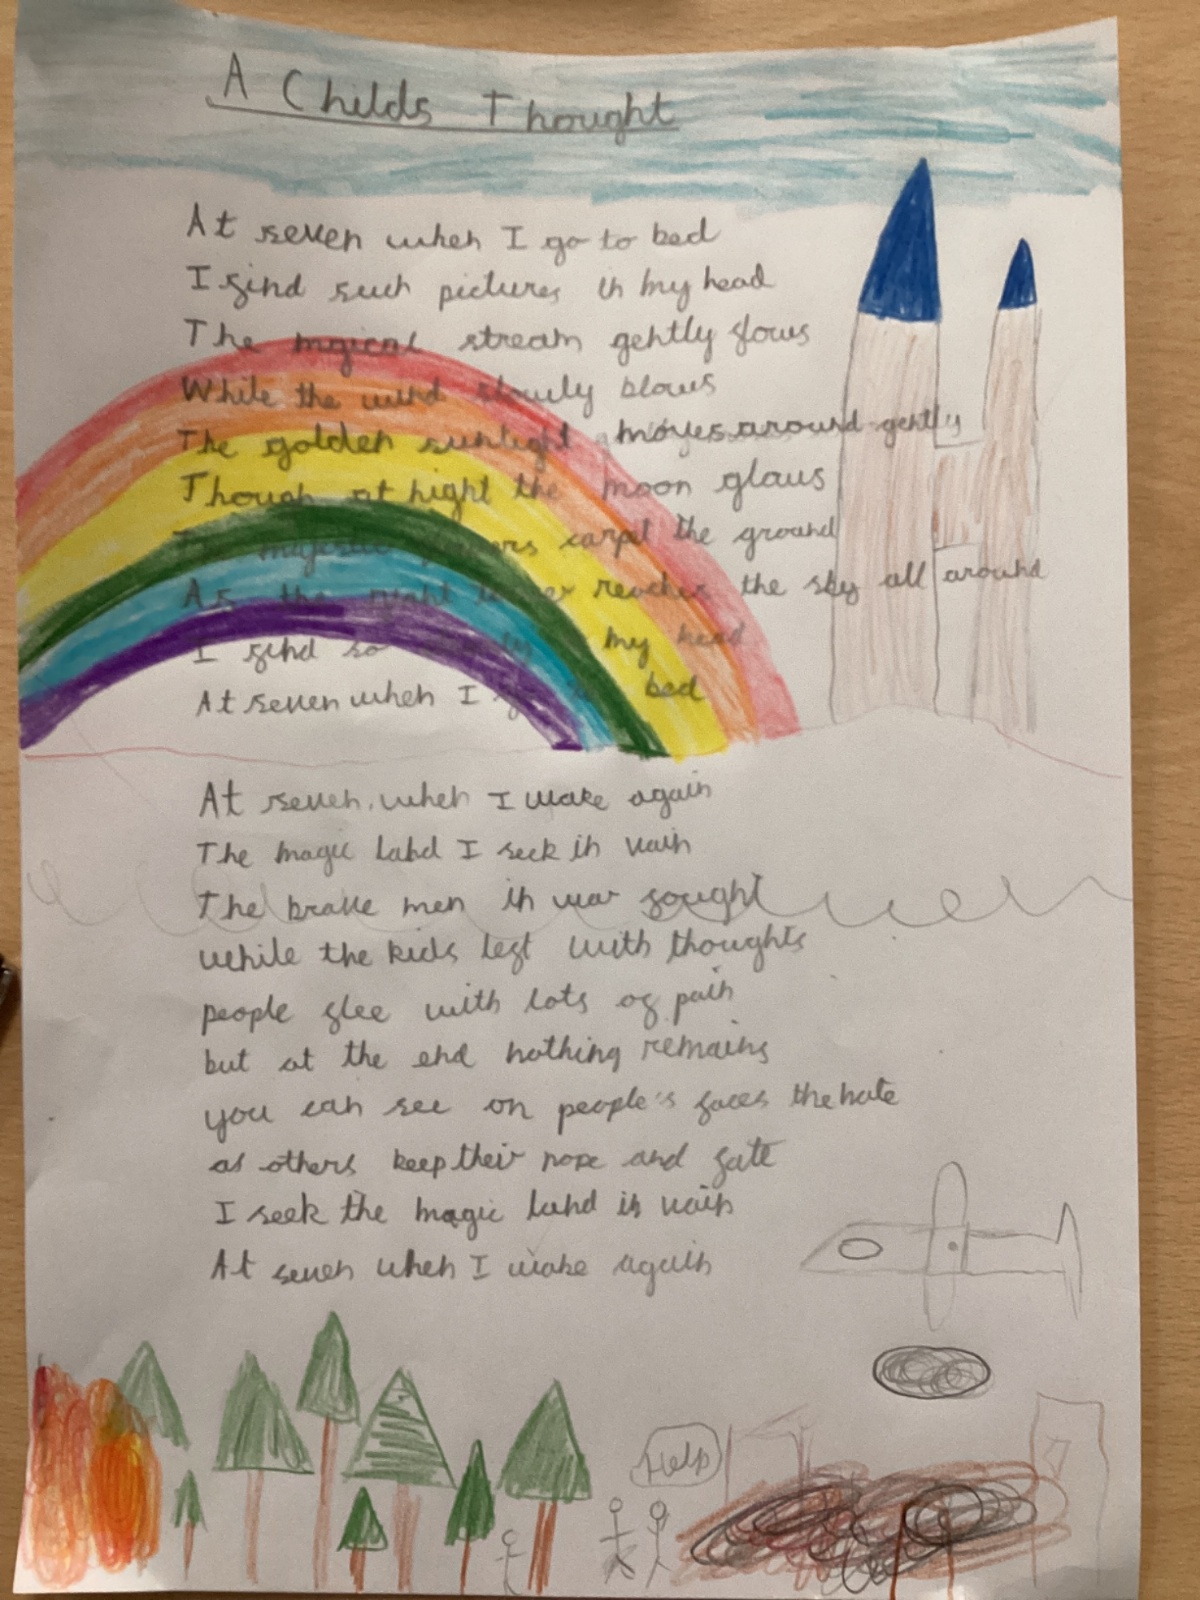 A Childs Thought
At seven when I go to bed
I find such pictures in my head
The magical stream gently flows
While the wind slowly blows
The golden sunlight moves around gently
Though at night the moon glows
The majestic flowers carpet the ground
As the tower reaches the sky all around
I find so my head
At seven when I go to bed
At seven, when I wake again
The magic land I seek in vain
The brave men in war fought
while the kids left with thoughts
people flee with lots of pain
but at the end nothing remains
you can see on people's faces the hate
as others keep their hope and fate
I seek the magic land in vain
At seven when I wake again
Help